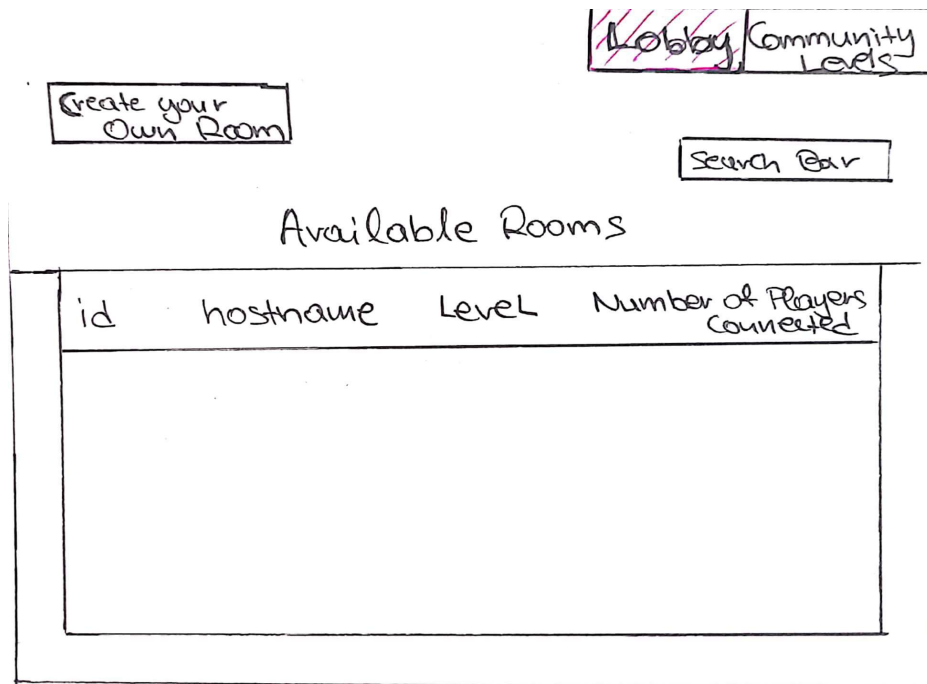 Lobby
Community
Levels
Create your
Own Room
Search Bar
Available Rooms
id hostname Level Number of Players
Connected